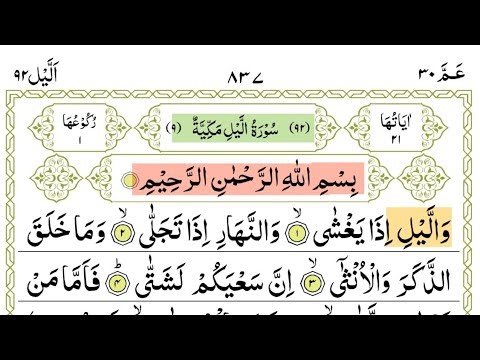 عَمَّ ٣٠ ٨٣٧ اَلَّيْل ٩٢
اٰيَاتُهَا ٢١ (٩٢) سُوْرَةُ الَّيْلِ مَكِّيَّةٌ (٩) رُكُوْعُهَا ١
بِسْمِ اللّٰهِ الرَّحْمٰنِ الرَّحِيْمِ
وَالَّيْلِ اِذَا يَغْشٰى ۙ‏ ١ وَالنَّهَارِ اِذَا تَجَلّٰى ۙ‏ ٢ وَمَا خَلَقَ
الذَّكَرَ وَالْاُنْثٰٓى ۙ‏ ٣ اِنَّ سَعْيَكُمْ لَشَتّٰى ؕ‏ ٤ فَاَمَّا مَنْ